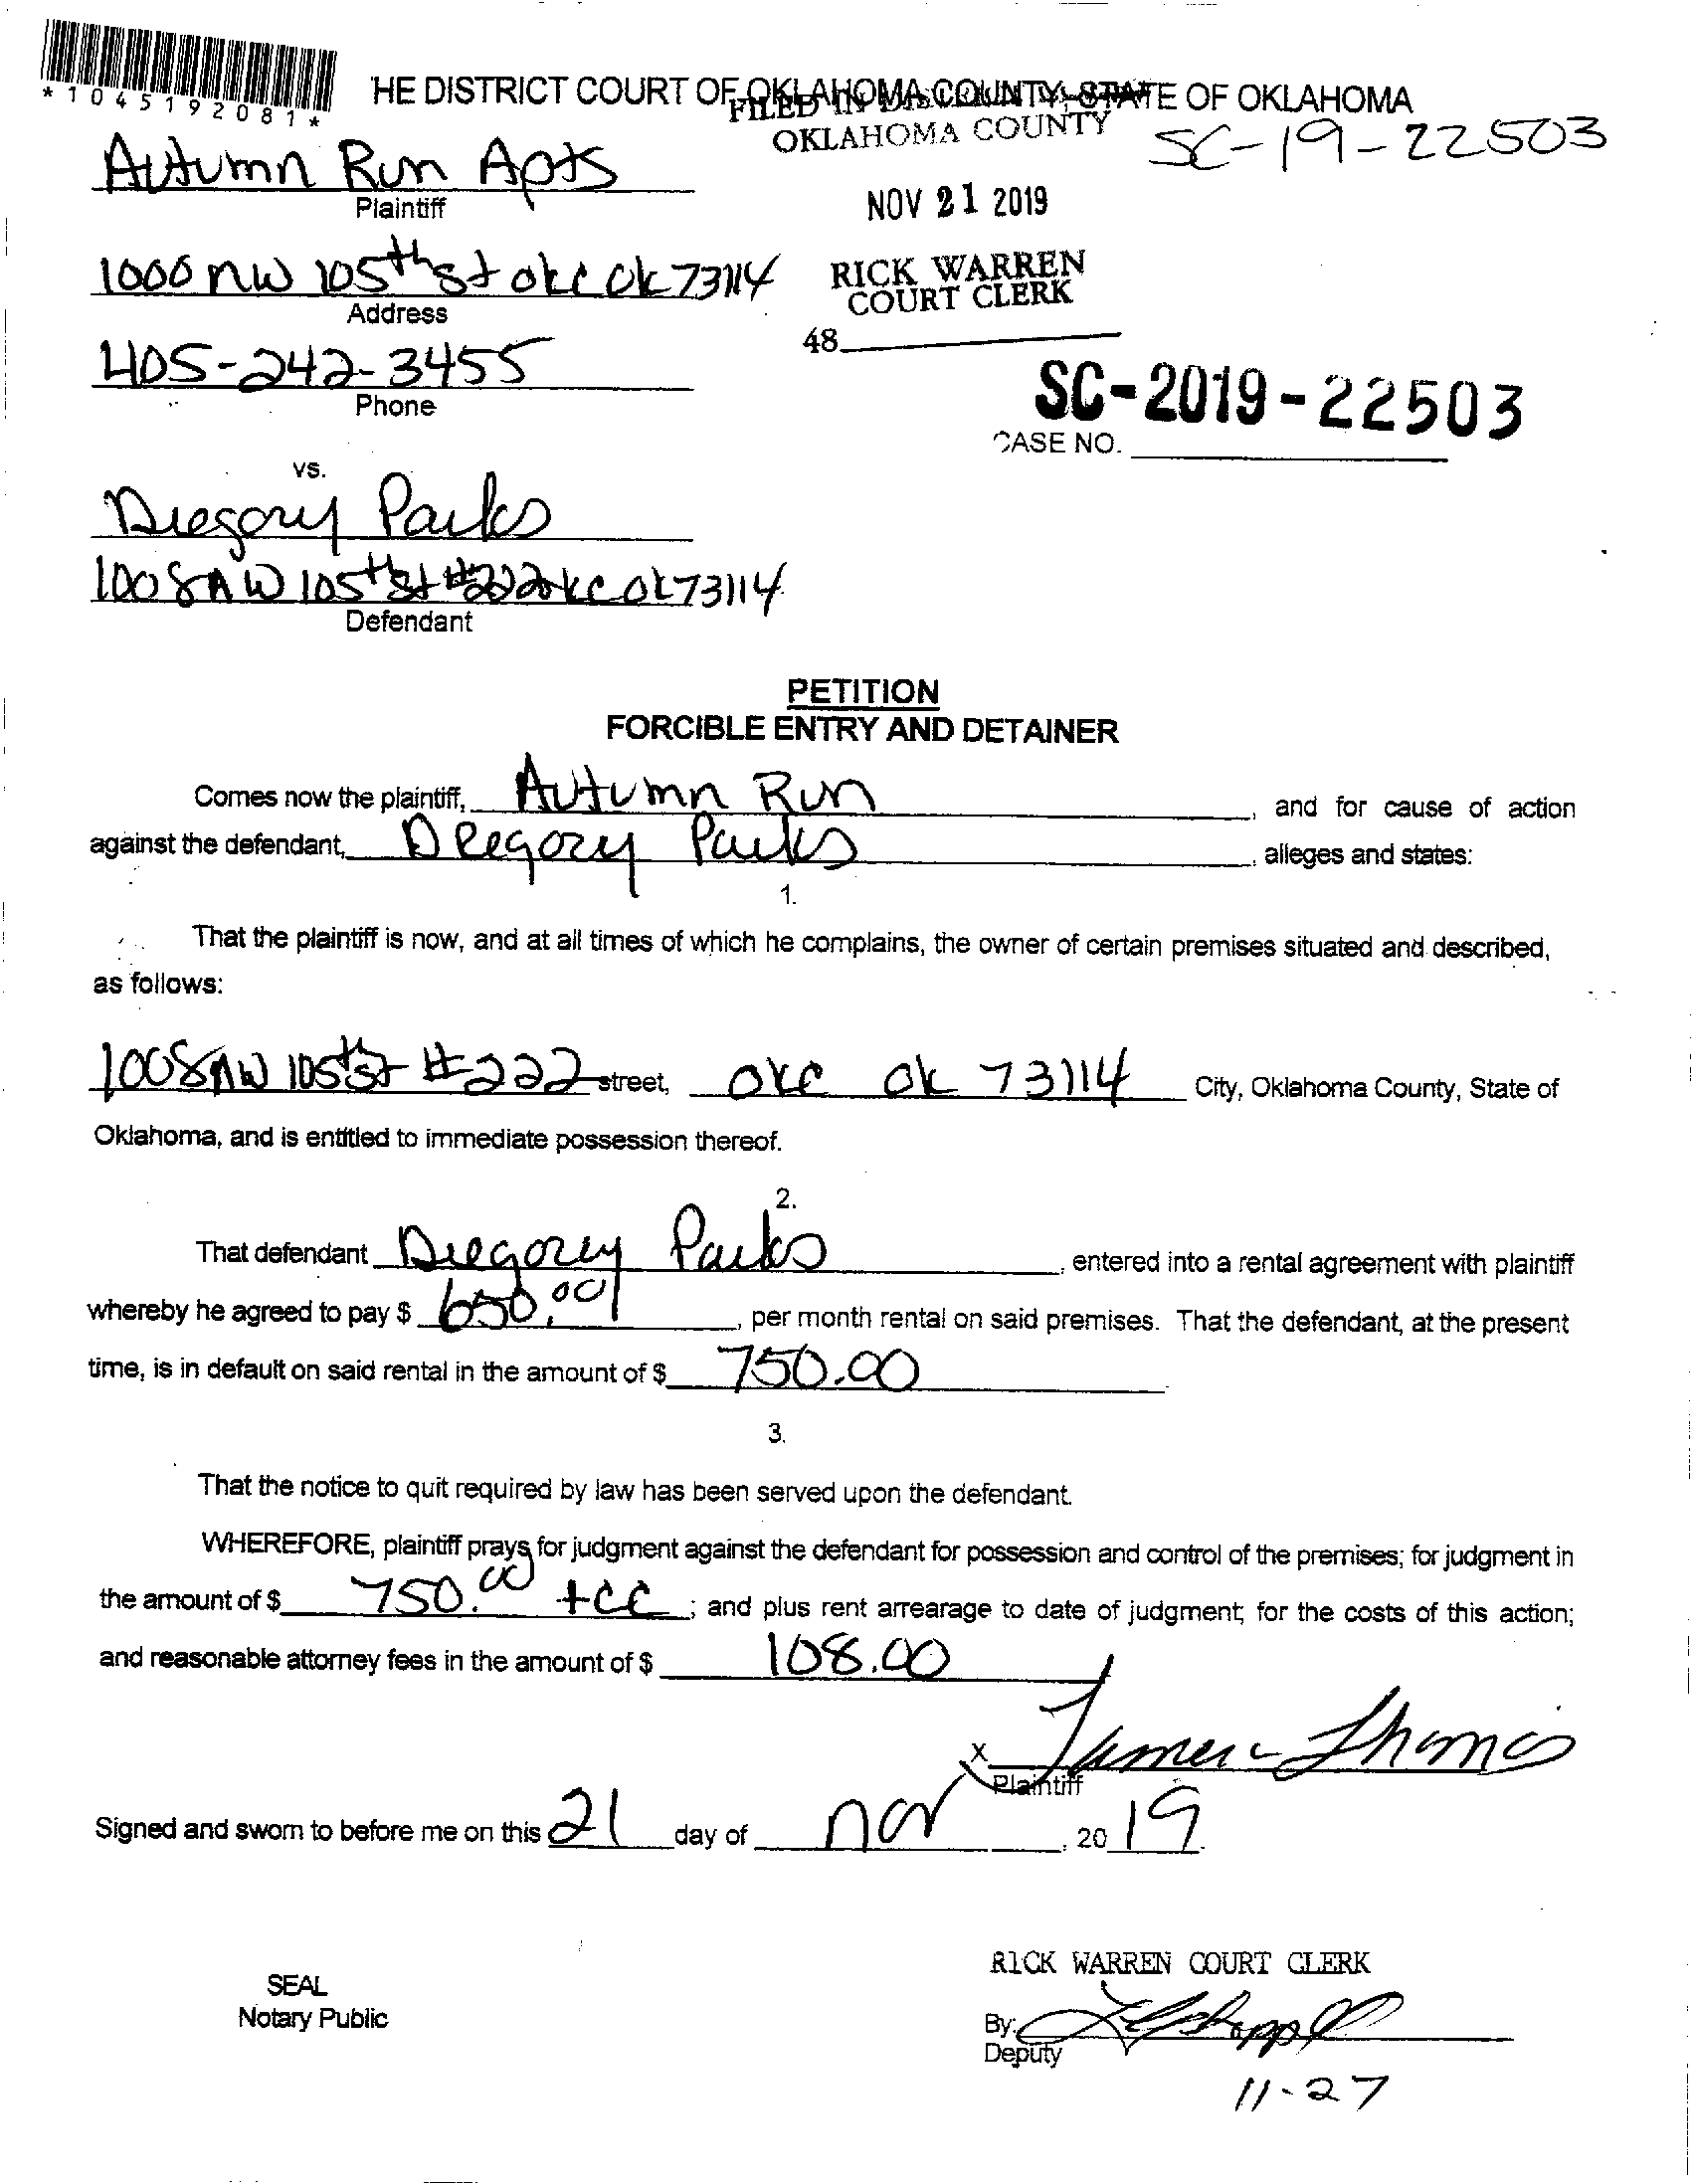 *1045192081*
HE DISTRICT COURT OF OKLAHOMA COUNTY, STATE OF OKLAHOMA
FILED IN DISTRICT COURT
OKLAHOMA COUNTY
SC-19-22503
Autumn Run Apts
Plaintiff
NOV 21 2019
1000 NW 105th st okc Ok 73114
Address
RICK WARREN
COURT CLERK
405-242-3455
Phone
48
SC-2019-22503
CASE NO.
vs.
Dregory Parks
1008 NW 105th st #222 okc ok 73114
Defendant
PETITION
FORCIBLE ENTRY AND DETAINER
Comes now the plaintiff, Autumn Run, and for cause of action
against the defendant, Dregory Parks, alleges and states:
1.
That the plaintiff is now, and at all times of which he complains, the owner of certain premises situated and described,
as follows:
1008 NW 105th st #222 street, okc ok 73114 City, Oklahoma County, State of
Oklahoma, and is entitled to immediate possession thereof.
2.
That defendant Dregory Parks, entered into a rental agreement with plaintiff
whereby he agreed to pay $ 650.00, per month rental on said premises. That the defendant, at the present
time, is in default on said rental in the amount of $ 750.00
3.
That the notice to quit required by law has been served upon the defendant.
WHEREFORE, plaintiff prays for judgment against the defendant for possession and control of the premises; for judgment in
the amount of $ 750.00 +CC; and plus rent arrearage to date of judgment; for the costs of this action;
and reasonable attorney fees in the amount of $ 108.00
X
Plaintiff
Signed and sworn to before me on this 21 day of nov, 20 19.
RICK WARREN COURT CLERK
SEAL
Notary Public
By:
Deputy
11-27